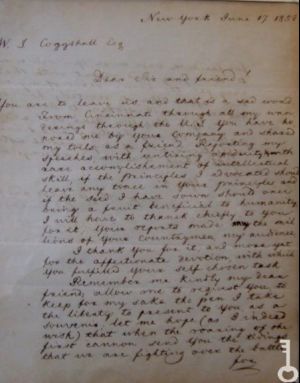 New York June 17 185
W. T. Coggshall Esq
Dear Sir and friend!
You are to leave us and that is a sad word
From Cincinnati through all my wan
derings through the U.S. you have ho
nored me by your company and shared
my toils, as a friend. Reporting my
speeches with untiring and
rare accomplishment of intellectual
skill. if the principles I advocated should
leave any trace in your principles and
if the seed I have sown should once
bring a fruit beneficial to humanity
I will have to thank chiefly to you
for it, your reports made my the mil
lions of your countrymen my audience
I thank you for it, and more yet
for the affectionate devotion, with which
you fulfilled your self chosen task
Remember me kindly my dear
friend, allow me to request you to
keep for my sake the pen I take
the liberty to present to you as a
souvenir let me hope (as I indeed
wish) that when the roaring of the
first cannon send you the tidings
that we are fighting over the battle